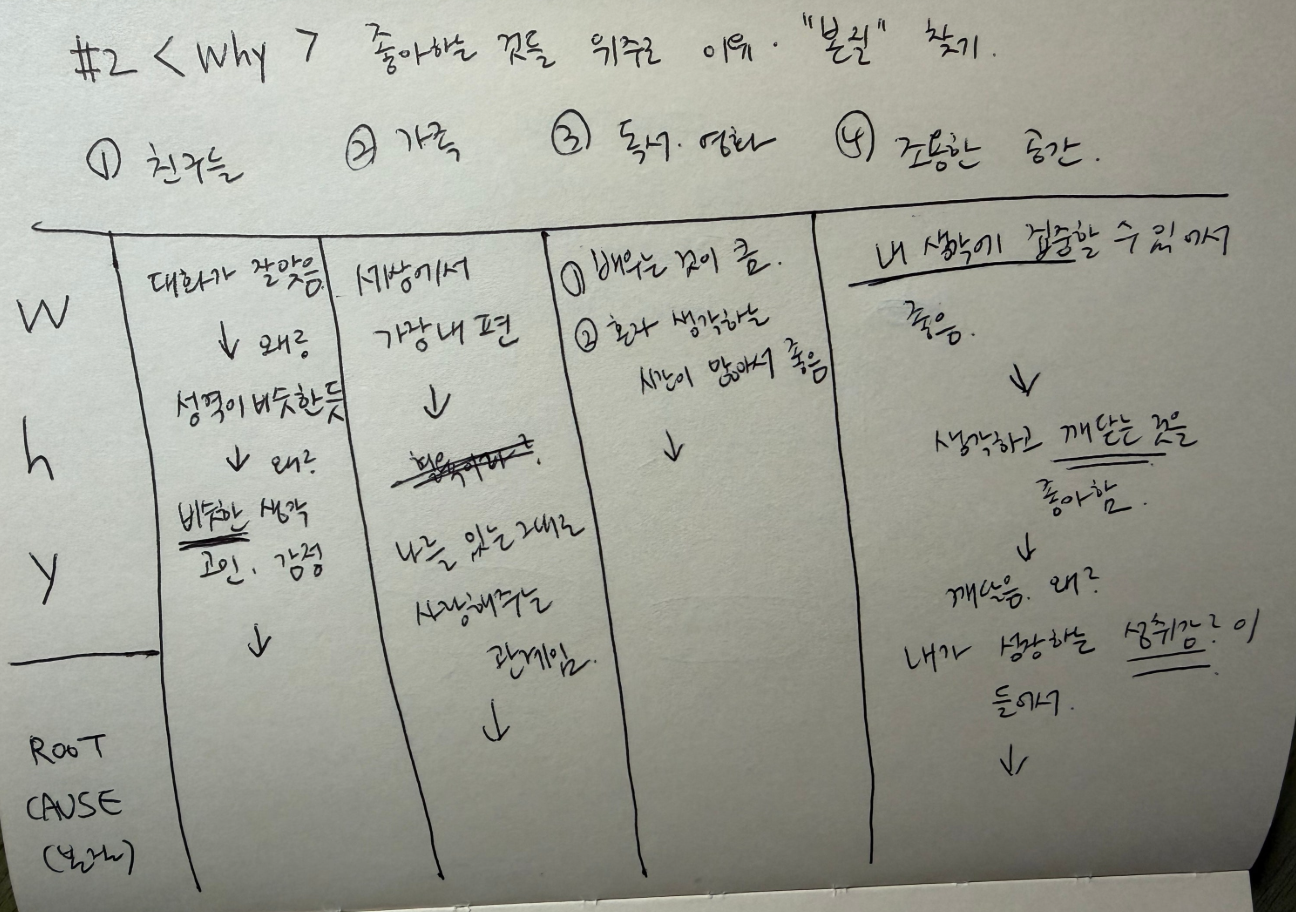 #2 <Why> 좋아하는 것들 위주로 이유. "본질" 찾기.
① 친구들 ② 가족 ③ 독서. 영화 ④ 조용한 공간.
W
h
y
대화가 잘맞음
↓ 왜?
성격이 비슷한듯
↓ 왜?
비슷한 생각
고민. 감정
↓
세상에서
가장 내 편
↓
나를 있는 그대로
사랑해주는
관계임.
↓
① 배우는 것이 큼.
② 혼자 생각하는
시간이 많아서 좋음
↓
내 생각에 집중할 수 있어서
좋음.
↓
생각하고 깨닫는 것을
좋아함.
↓
깨달음. 왜?
내가 성장하는 성취감? 이
들어서.
↓
ROOT
CAUSE
(본질)